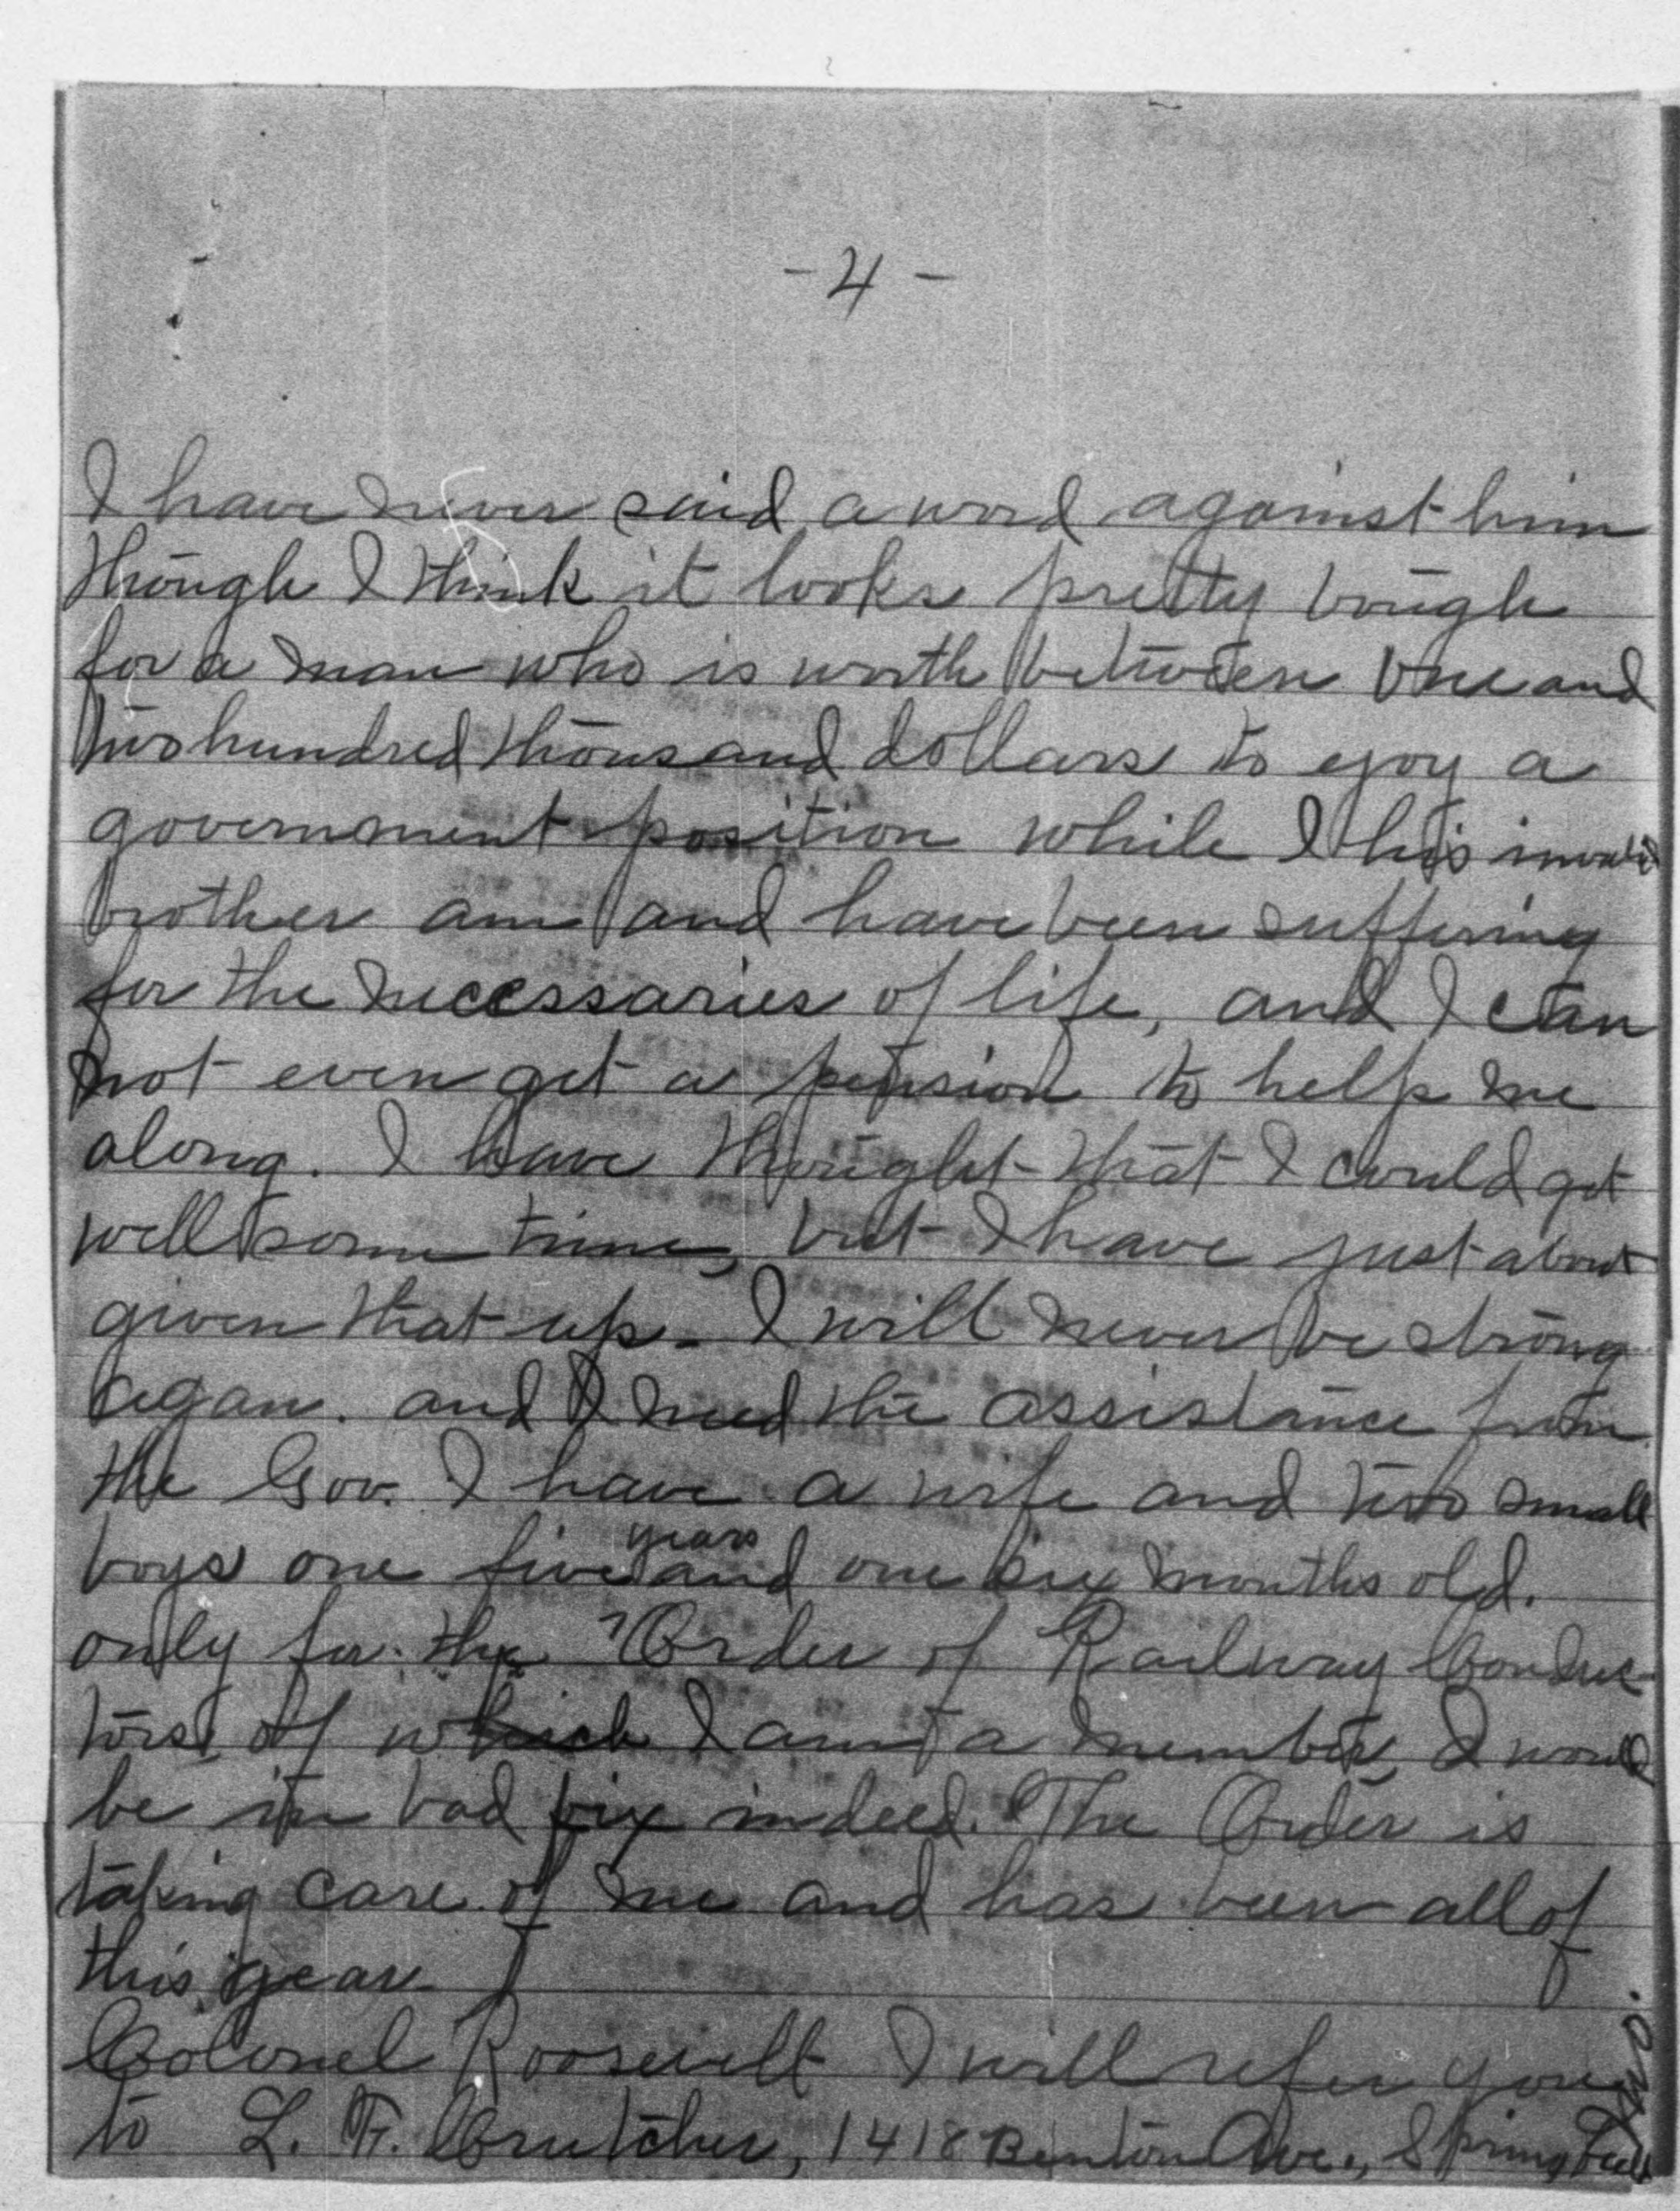 -4-
I have never said a word against him
though I think it looks pretty tough
for a man who is worth between one and
two hundred thousand dollars to ejoy a
government position while I his invalid
brother am and have been suffering
for the necessaries of life, and I can
not even get a pension to help me
along. I have thought that I could get
well some time, but I have just about
given that up. I will never be strong
agan. and I need the assistance from
the Gov. I have a wife and two small
boys one five years and one six months old.
only for the "Order of Railway Conduc-
tors, of which I am a member, I would
be in bad fix indeed. The Order is
taking care of me and has been all of
this year.
Colonel Roosevelt I will refer you
to L. F. Crutcher, 1418 Benton Ave., Springfield
Mo.